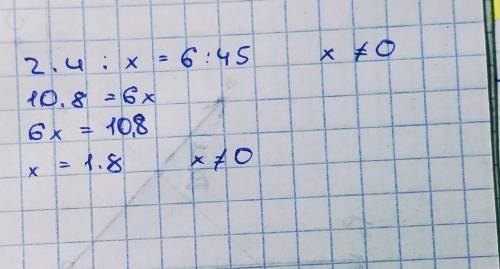 2.4 : x = 6 : 45 x ≠ 0
10.8 = 6x
6x = 10,8
x = 1.8 x ≠ 0